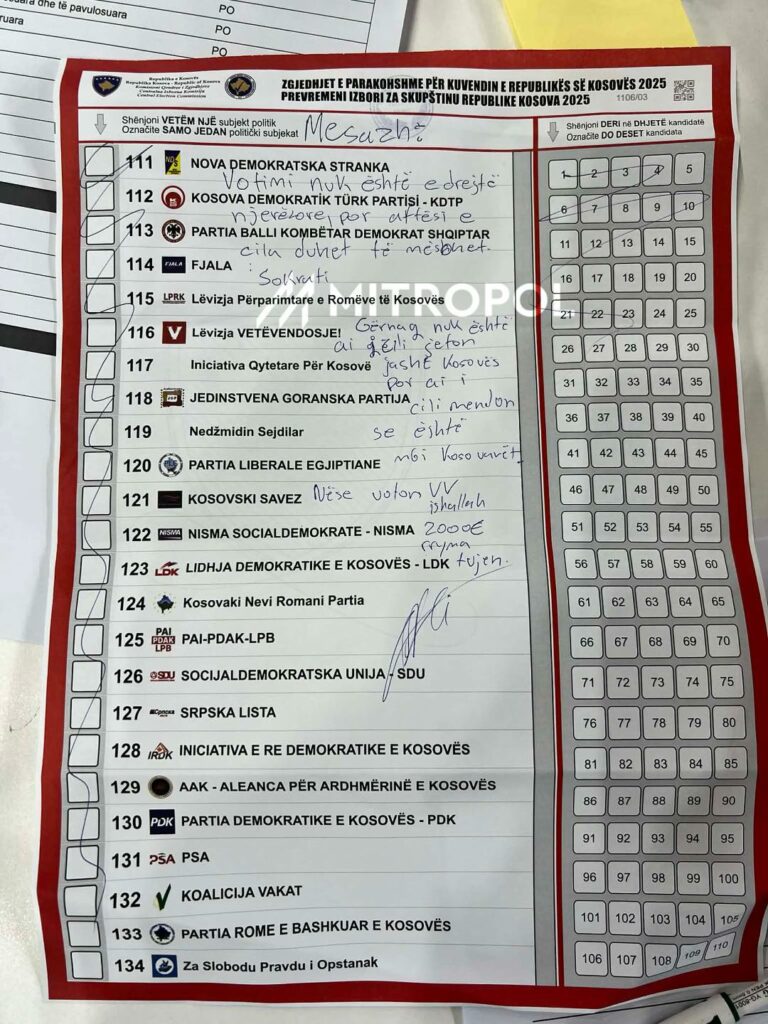 esuara dhe të pavulosuara
ruara
PO
PO
PO
Republika e Kosovës
Republika Kosova - Republic of Kosovo
Komisioni Qendror i Zgjedhjeve
Centralna Izborna Komisija
Central Election Commission
ZGJEDHJET E PARAKOHSHME PËR KUVENDIN E REPUBLIKËS SË KOSOVËS 2025
PREVREMENI IZBORI ZA SKUPŠTINU REPUBLIKE KOSOVA 2025
1106/03
Shënjoni VETËM NJË subjekt politik
Označite SAMO JEDAN politički subjekat
Mesazhi
Shënjoni DERI në DHJETË kandidatë
Označite DO DESET kandidata
111 NOVA DEMOKRATSKA STRANKA
Votimi nuk është e drejtë
112 KOSOVA DEMOKRATİK TÜRK PARTİSİ - KDTP
njerëzore, por aftësi e
113 PARTIA BALLI KOMBËTAR DEMOKRAT SHQIPTAR
cila duhet të mësohet.
114 FJALA FJALA
Sokrati
MITROPOL
115 LPRK Lëvizja Përparimtare e Romëve të Kosovës
116 V Lëvizja VETËVENDOSJE!
Gërnaq nuk është
ai i cili jeton
117 Iniciativa Qytetare Për Kosovë
jashtë Kosovës
por ai i
118 JEDINSTVENA GORANSKA PARTIJA
cili mendon
119 Nedžmidin Sejdilar
se është
120 PARTIA LIBERALE EGJIPTIANE
mbi Kosovarët.
121 KOSOVSKI SAVEZ
Nëse voton VV
ishallah
122 NISMA NISMA SOCIALDEMOKRATE - NISMA
2000€
rryma
123 LDK LIDHJA DEMOKRATIKE E KOSOVËS - LDK
tujen.
124 Kosovaki Nevi Romani Partia
125 PAI PDAK LPB PAI-PDAK-LPB
126 SDU SOCIJALDEMOKRATSKA UNIJA - SDU
127 Српска SRPSKA LISTA
128 IRDK INICIATIVA E RE DEMOKRATIKE E KOSOVËS
129 AAK - ALEANCA PËR ARDHMËRINË E KOSOVËS
130 PDK PARTIA DEMOKRATIKE E KOSOVËS - PDK
131 PSA PSA
132 KOALICIJA VAKAT
133 PARTIA ROME E BASHKUAR E KOSOVËS
134 Za Slobodu Pravdu i Opstanak
1 2 3 4 5
6 7 8 9 10
11 12 13 14 15
16 17 18 19 20
21 22 23 24 25
26 27 28 29 30
31 32 33 34 35
36 37 38 39 40
41 42 43 44 45
46 47 48 49 50
51 52 53 54 55
56 57 58 59 60
61 62 63 64 65
66 67 68 69 70
71 72 73 74 75
76 77 78 79 80
81 82 83 84 85
86 87 88 89 90
91 92 93 94 95
96 97 98 99 100
101 102 103 104 105
106 107 108 109 110